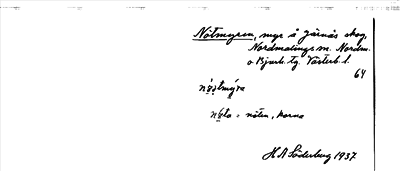 Nötmyren, myr å Järnäs skog,
Nordmalings sn. Nordm.
o Bjurh. tg. Västerb. l.
64
nö̀tmýra
nöta = nöten, korna
H A Söderberg 1937